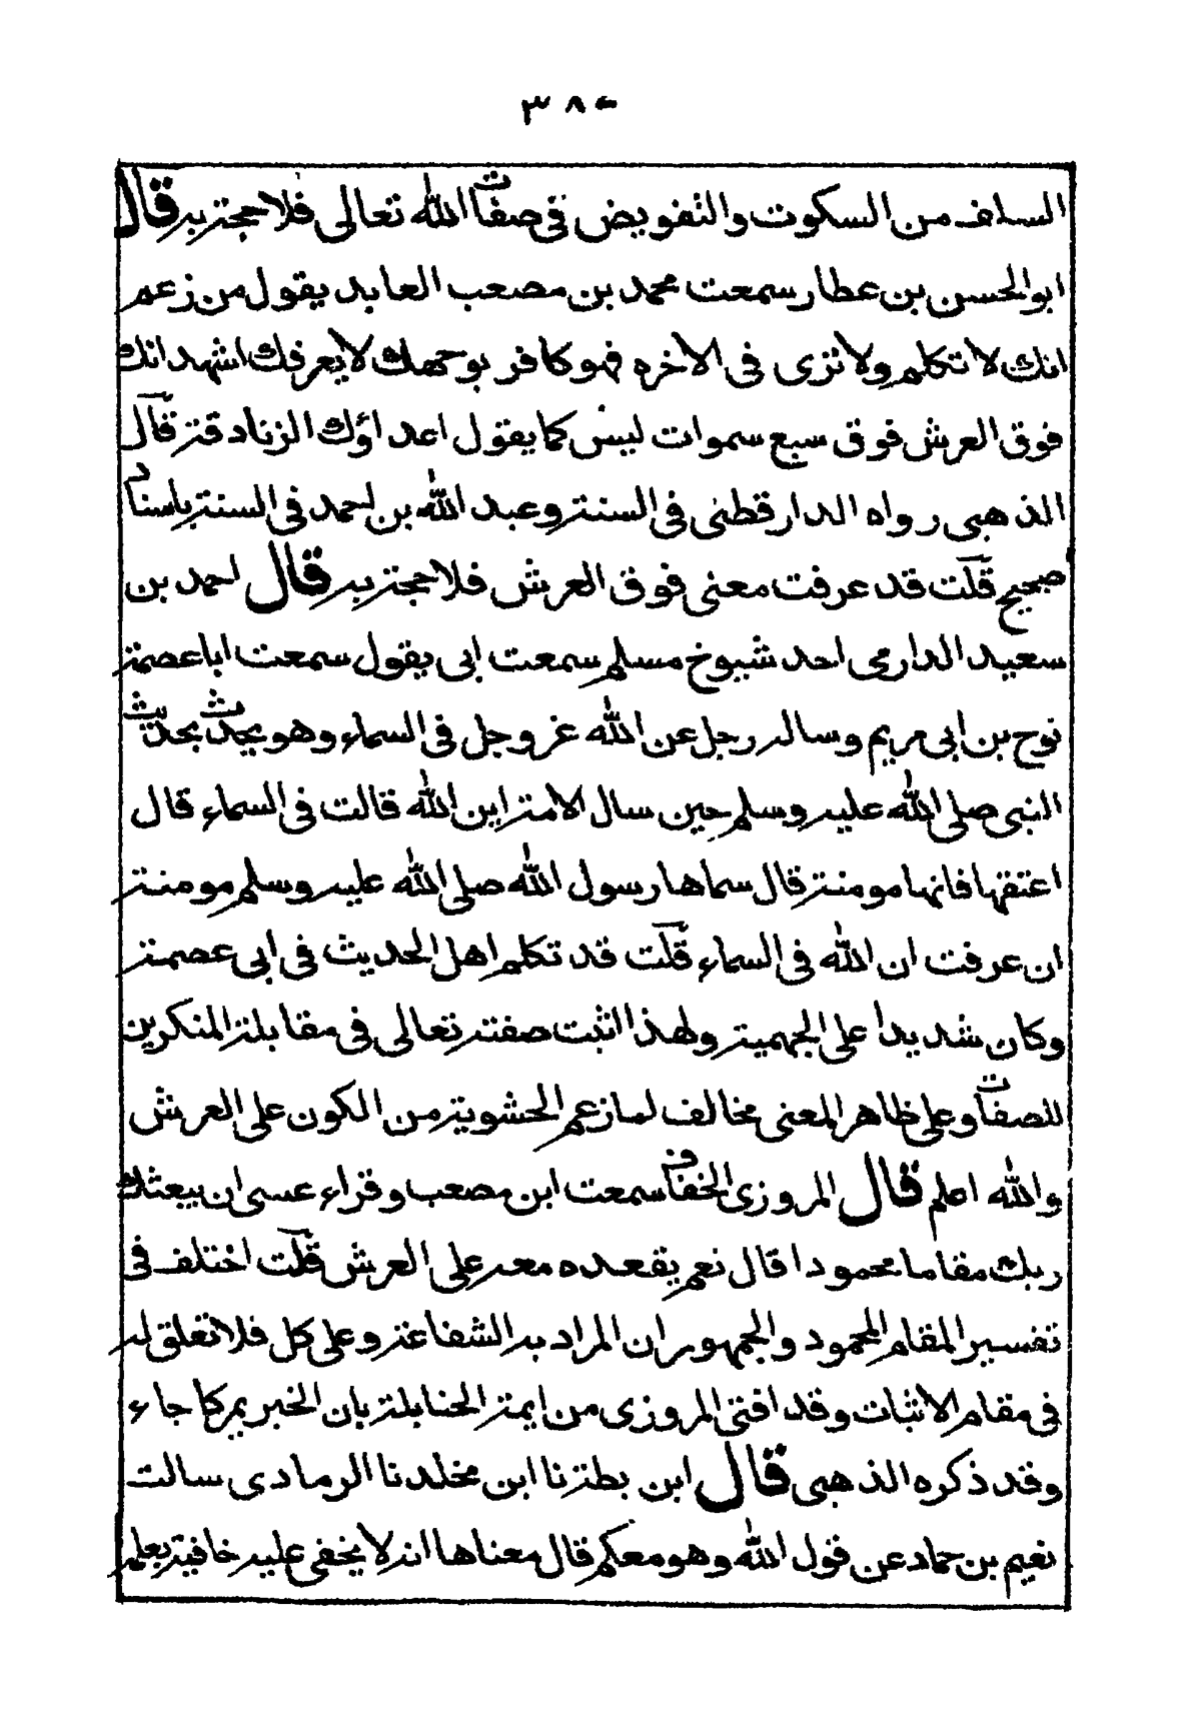 ٣٨٠
السلف من السكوت والتفويض في صفات الله تعالى فلا حجة به قال
ابو الحسن بن عطار سمعت محمد بن مصعب العابد يقول من زعم
انك لا تتكلم ولا ترى فى الاخره فهو كافر بوجهك لا يعرفك اشهد انك
فوق العرش فوق سبع سموات ليس كما يقول اعداؤك الزنادقة قال
الذهبى رواه الدارقطنى فى السنة وعبد الله بن احمد فى السنة باسناد
صحيح قلت قد عرفت معنى فوق العرش فلا حجة به قال احمد بن
سعيد الدارمى احد شيوخ مسلم سمعت ابى يقول سمعت ابا عصمة
نوح بن ابى مريم وساله رجل عن الله عز وجل فى السماء وهو يحدث بحديث
النبى صلى الله عليه وسلم حين سال الامة اين الله قالت فى السماء قال
اعتقها فانها مومنة قال سماها رسول الله صلى الله عليه وسلم مومنة
ان عرفت ان الله فى السماء قلت قد تكلم اهل الحديث فى ابى عصمة
وكان شديدا على الجهمية ولهذا اثبت صفته تعالى فى مقابلة المنكرين
للصفات وعلى ظاهر المعنى مخالف لما زعم الحشوية من الكون على العرش
والله اعلم قال المروزى الخفاف سمعت ابن مصعب وقراء عسى ان يبعثك
ربك مقاما محمودا قال نعم يقعده معه على العرش قلت اختلف فى
تفسير المقام المحمود والجمهور ان المراد به الشفاعة وعلى كل فلا تعلق له
فى مقام الاثبات وقد افتى المروزى من ايمة الحنابلة بان الخبر يمر كا جاء
وقد ذكره الذهبى قال ابن بطة نا ابن مخلد نا الرمادى سالت
نعيم بن حماد عن قول الله وهو معكم قال معناها انه لا يخفى عليه خافية بعلمه